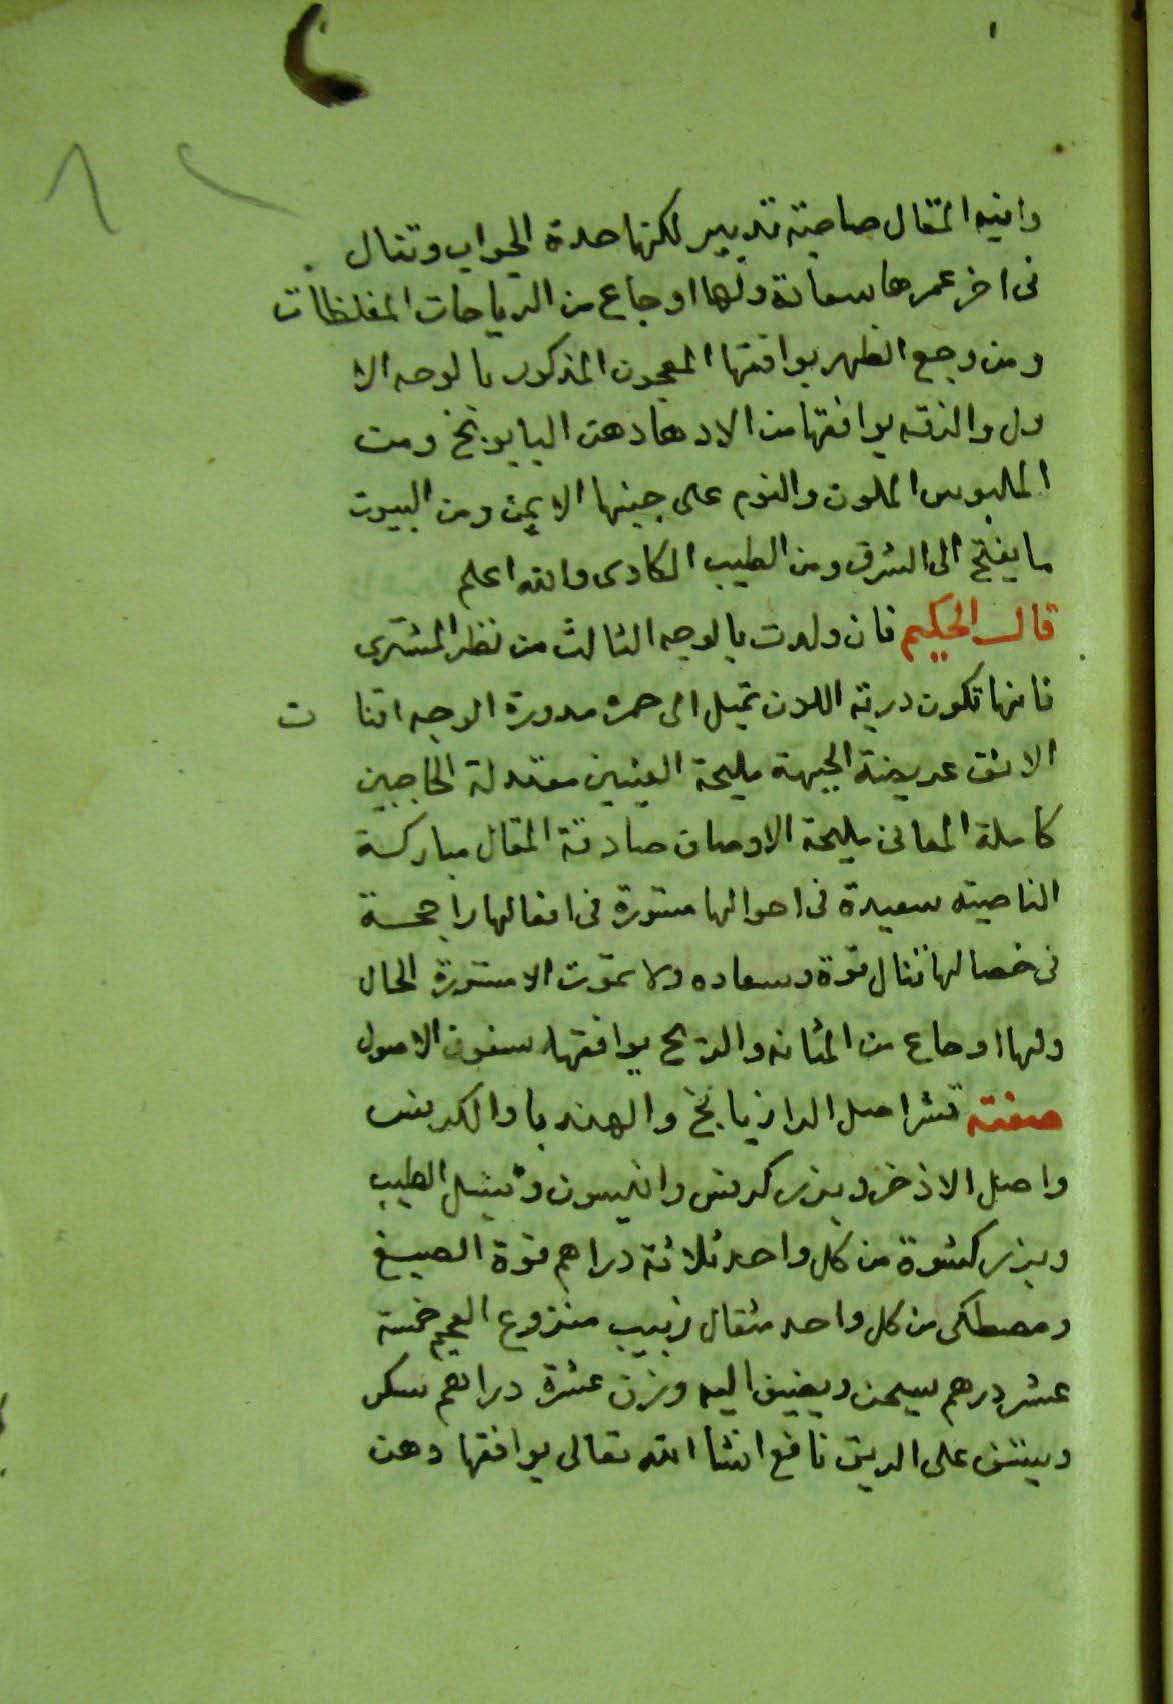 وافيه المقال صاحبة تدبير لكنها حدة الجواب وتنال
فى اخر عمرها سعادة ولها اوجاع من الرياحات المغلظات
ومن وجع الظهر يوافقها المعجون المذكور بالوجه الا
ول والزقه يوافقها من الادهاد دهن البابونج ومن
الملبوس الملون والنوم على جبنها الايمن ومن البيوت
ما يفتح الى الشرق ومن الطيب الكادى والله اعلم
قال الحكيم فان ولدت بالوجه الثالث من نظر المشترى
فانها تكون درية اللون تميل الى حمره مدورة الوجه اقنا ت
الانف عريضة الجبهة مليحة العينين معتدلة الحاجبين
كاملة المعانى مليحة الاوصاف صادقة المقال مباركة
الناصيته سعيدة فى احوالها مستورة فى افعالها راجحة
فى خصالها تنال قوة وسعاده ولا تموت الا مستورة الحال
ولها اوجاع من المثانه والريح يوافقها سفوف الاصول
صفته قشر اصل الرازيانج والهندبا والكرفس
واصل الاذخر وبزر كرفس وانيسون وسنبل الطيب
وبزر كشوة من كل واحد ثلاثة دراهم فوة الصبغ
ومصطكى من كل واحد مثقال زبيب منزوع العجم خمسة
عشر درهم يسحن ويضيف اليه وزن عشرة دراهم سكر
ويستف على الريق نافع انشا الله تعالى يوافقها دهن